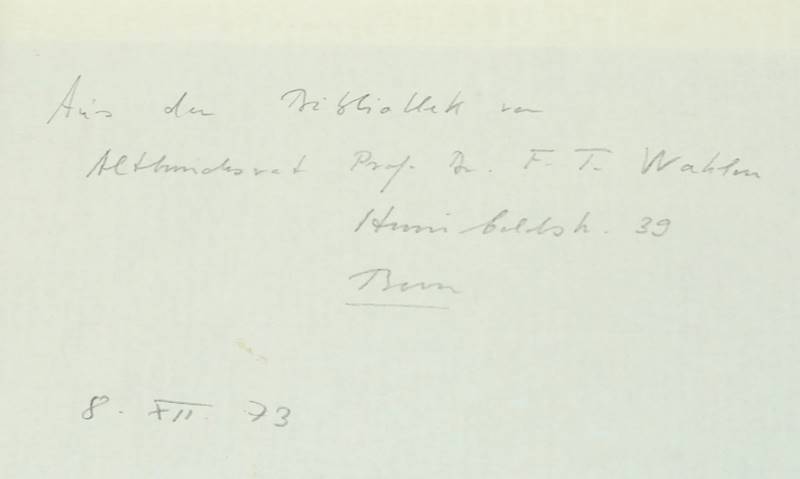 Aus der Bibliothek von
Altbundesrat Prof. Dr. F. T. Wahlen
Humboldtstr. 39
Bern
8. XII. 73